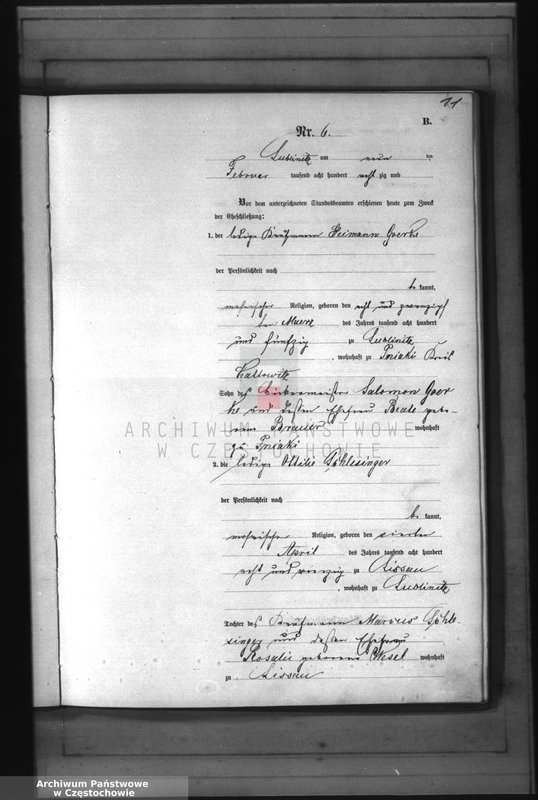 11
B.
Nr. 6.
Lublinitz am neun ten
Februar tausend acht hundert acht zig und
Vor dem unterzeichneten Standesbeamten erschienen heute zum Zweck
der Eheschließung:
1. der ledige Kaufmann Heimann
der Persönlichkeit nach
be kannt,
mosaischer Religion, geboren den acht und zwanzigsten
März des Jahres tausend acht hundert
und fünfzig zu Lublinitz
, wohnhaft zu Kreis
Kattowitz
Sohn des Salomon
und dessen Ehefrau Beate gebo-
rene wohnhaft
zu
2. die ledige Ottilie Schlesinger
der Persönlichkeit nach
be kannt,
mosaischer Religion, geboren den vierten
April des Jahres tausend acht hundert
acht und vierzig zu Lissau
, wohnhaft zu Lublinitz
Tochter des Kaufmann Marcus Schle-
singer und dessen Ehefrau
Rosalie geborene wohnhaft
zu Lissau
ARCHIWUM PAŃSTWOWE
W CZĘSTOCHOWIE
Archiwum Państwowe
w Częstochowie